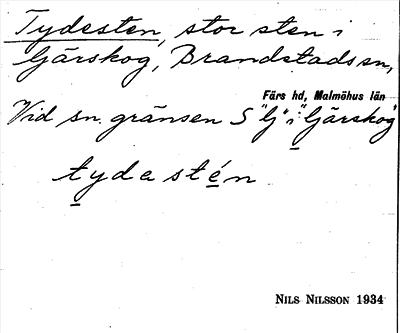 Tydesten, stor sten i
Gärskog, Brandstads sn,
Färs hd, Malmöhus län
Vid sn. gränsen S "G" i "Gärskog"
tydestén
NILS NILSSON 1934